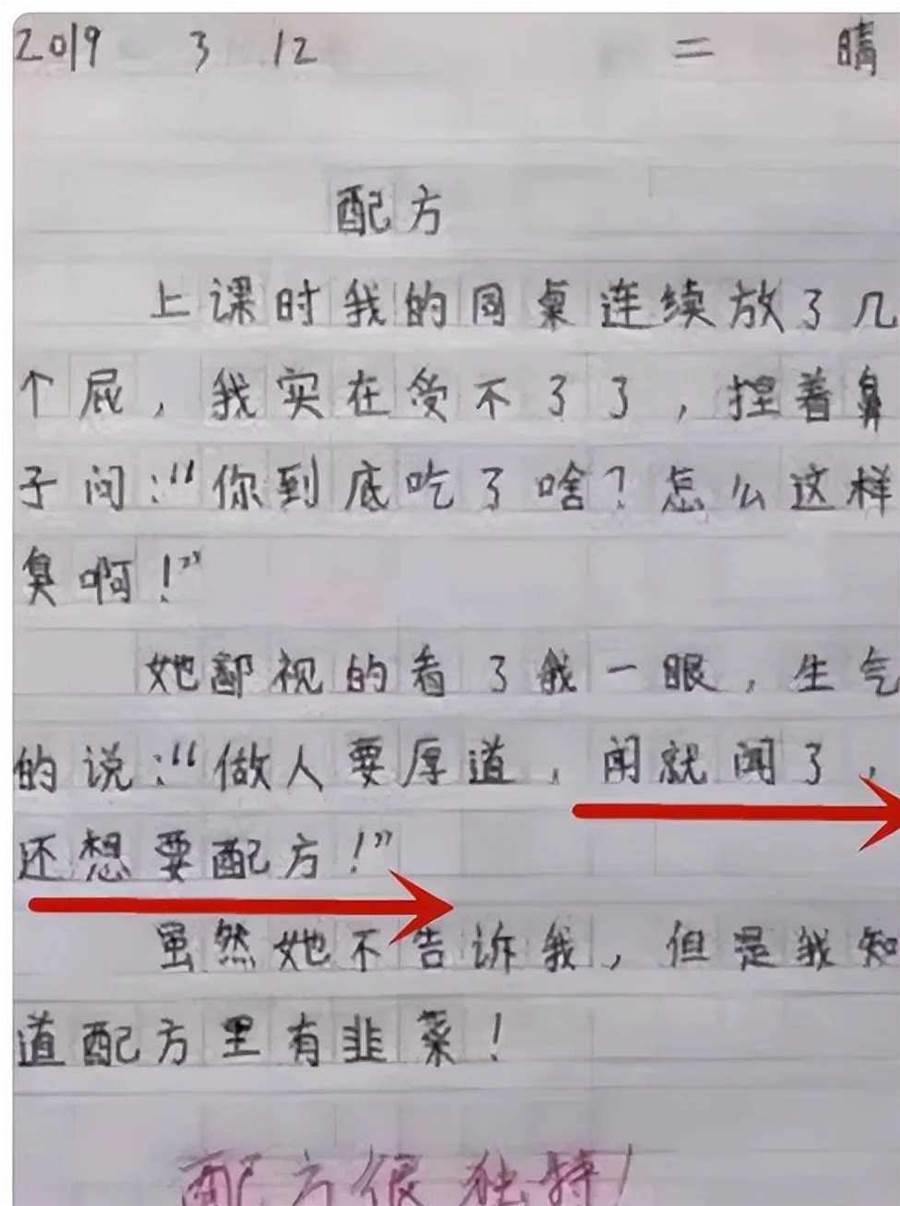 2019 3 12 二 晴
配方
上课时我的同桌连续放了几
个屁，我实在受不了了，捏着鼻
子问：“你到底吃了啥？怎么这样
臭啊！”
她鄙视的看了我一眼，生气
的说：“做人要厚道，闻就闻了，
还想要配方！”
虽然她不告诉我，但是我知
道配方里有韭菜！
配方很独特！